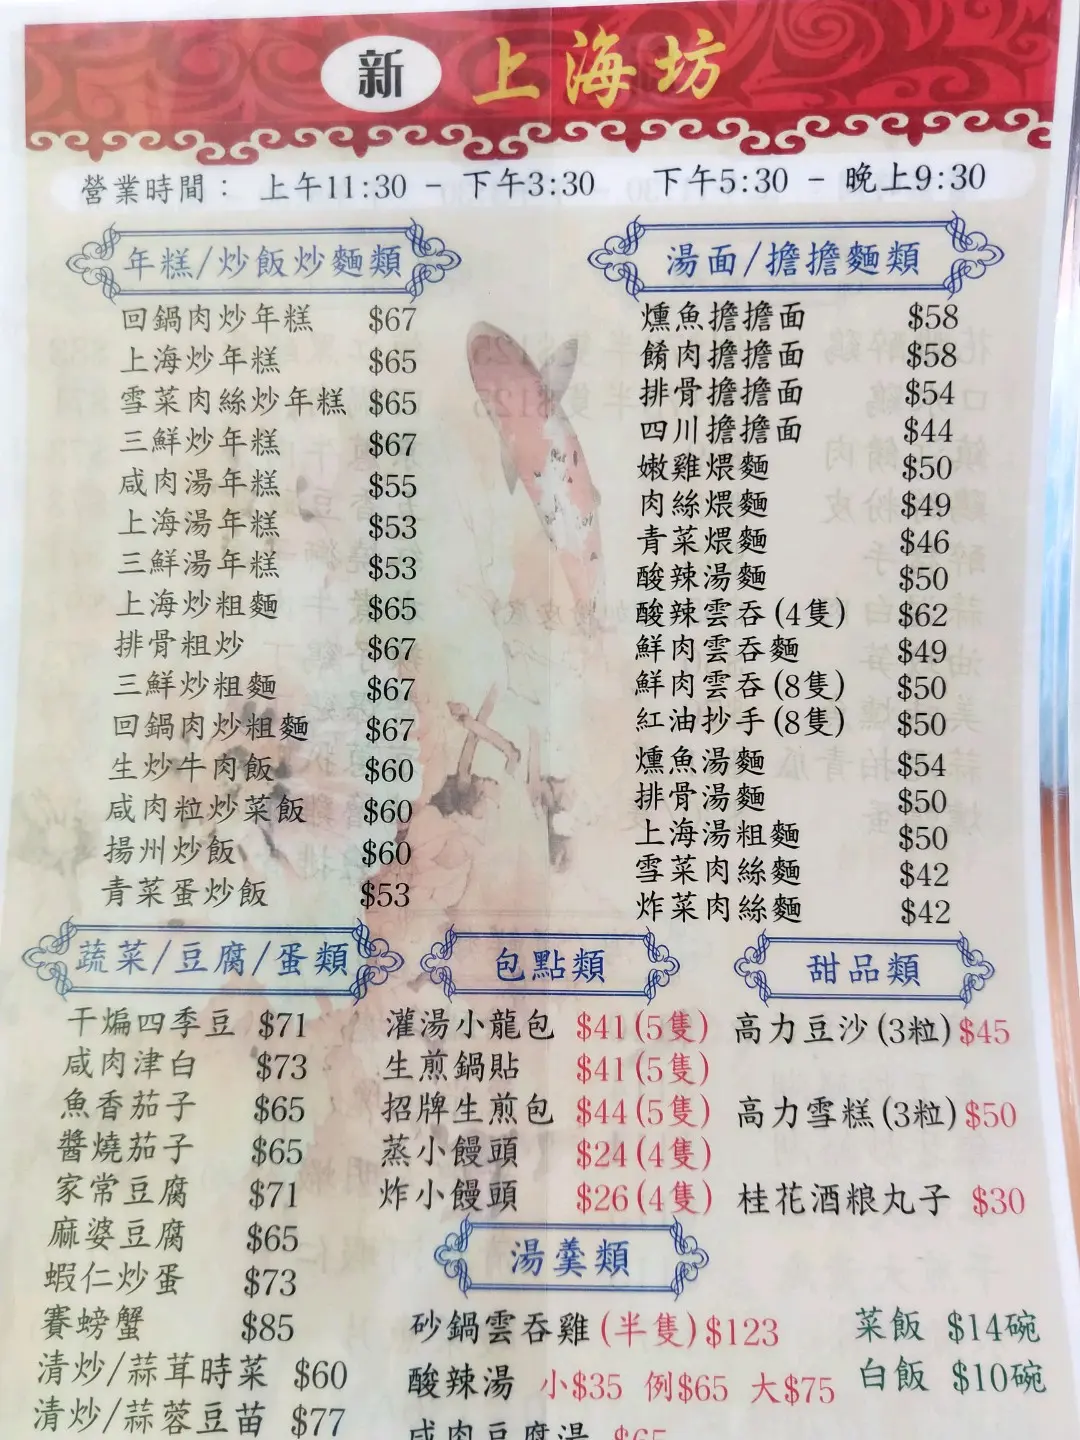 新 上海坊
營業時間： 上午11:30 - 下午3:30 下午5:30 - 晚上9:30
年糕/炒飯炒麵類
回鍋肉炒年糕 $67
上海炒年糕 $65
雪菜肉絲炒年糕 $65
三鮮炒年糕 $67
咸肉湯年糕 $55
上海湯年糕 $53
三鮮湯年糕 $53
上海炒粗麵 $65
排骨粗炒 $67
三鮮炒粗麵 $67
回鍋肉炒粗麵 $67
生炒牛肉飯 $60
咸肉粒炒菜飯 $60
揚州炒飯 $60
青菜蛋炒飯 $53
湯面/擔擔麵類
燻魚擔擔面 $58
餚肉擔擔面 $58
排骨擔擔面 $54
四川擔擔面 $44
嫩雞煨麵 $50
肉絲煨麵 $49
青菜煨麵 $46
酸辣湯麵 $50
酸辣雲吞(4隻) $62
鮮肉雲吞麵 $49
鮮肉雲吞(8隻) $50
紅油抄手(8隻) $50
燻魚湯麵 $54
排骨湯麵 $50
上海湯粗麵 $50
雪菜肉絲麵 $42
炸菜肉絲麵 $42
蔬菜/豆腐/蛋類
干煸四季豆 $71
咸肉津白 $73
魚香茄子 $65
醬燒茄子 $65
家常豆腐 $71
麻婆豆腐 $65
蝦仁炒蛋 $73
賽螃蟹 $85
清炒/蒜茸時菜 $60
清炒/蒜蓉豆苗 $77
包點類
灌湯小龍包 $41(5隻)
生煎鍋貼 $41(5隻)
招牌生煎包 $44(5隻)
蒸小饅頭 $24(4隻)
炸小饅頭 $26(4隻)
甜品類
高力豆沙(3粒)$45
高力雪糕(3粒)$50
桂花酒粮丸子 $30
湯羹類
砂鍋雲吞雞(半隻)$123
酸辣湯 小$35 例$65 大$75
咸肉豆腐湯 $65
菜飯 $14碗
白飯 $10碗